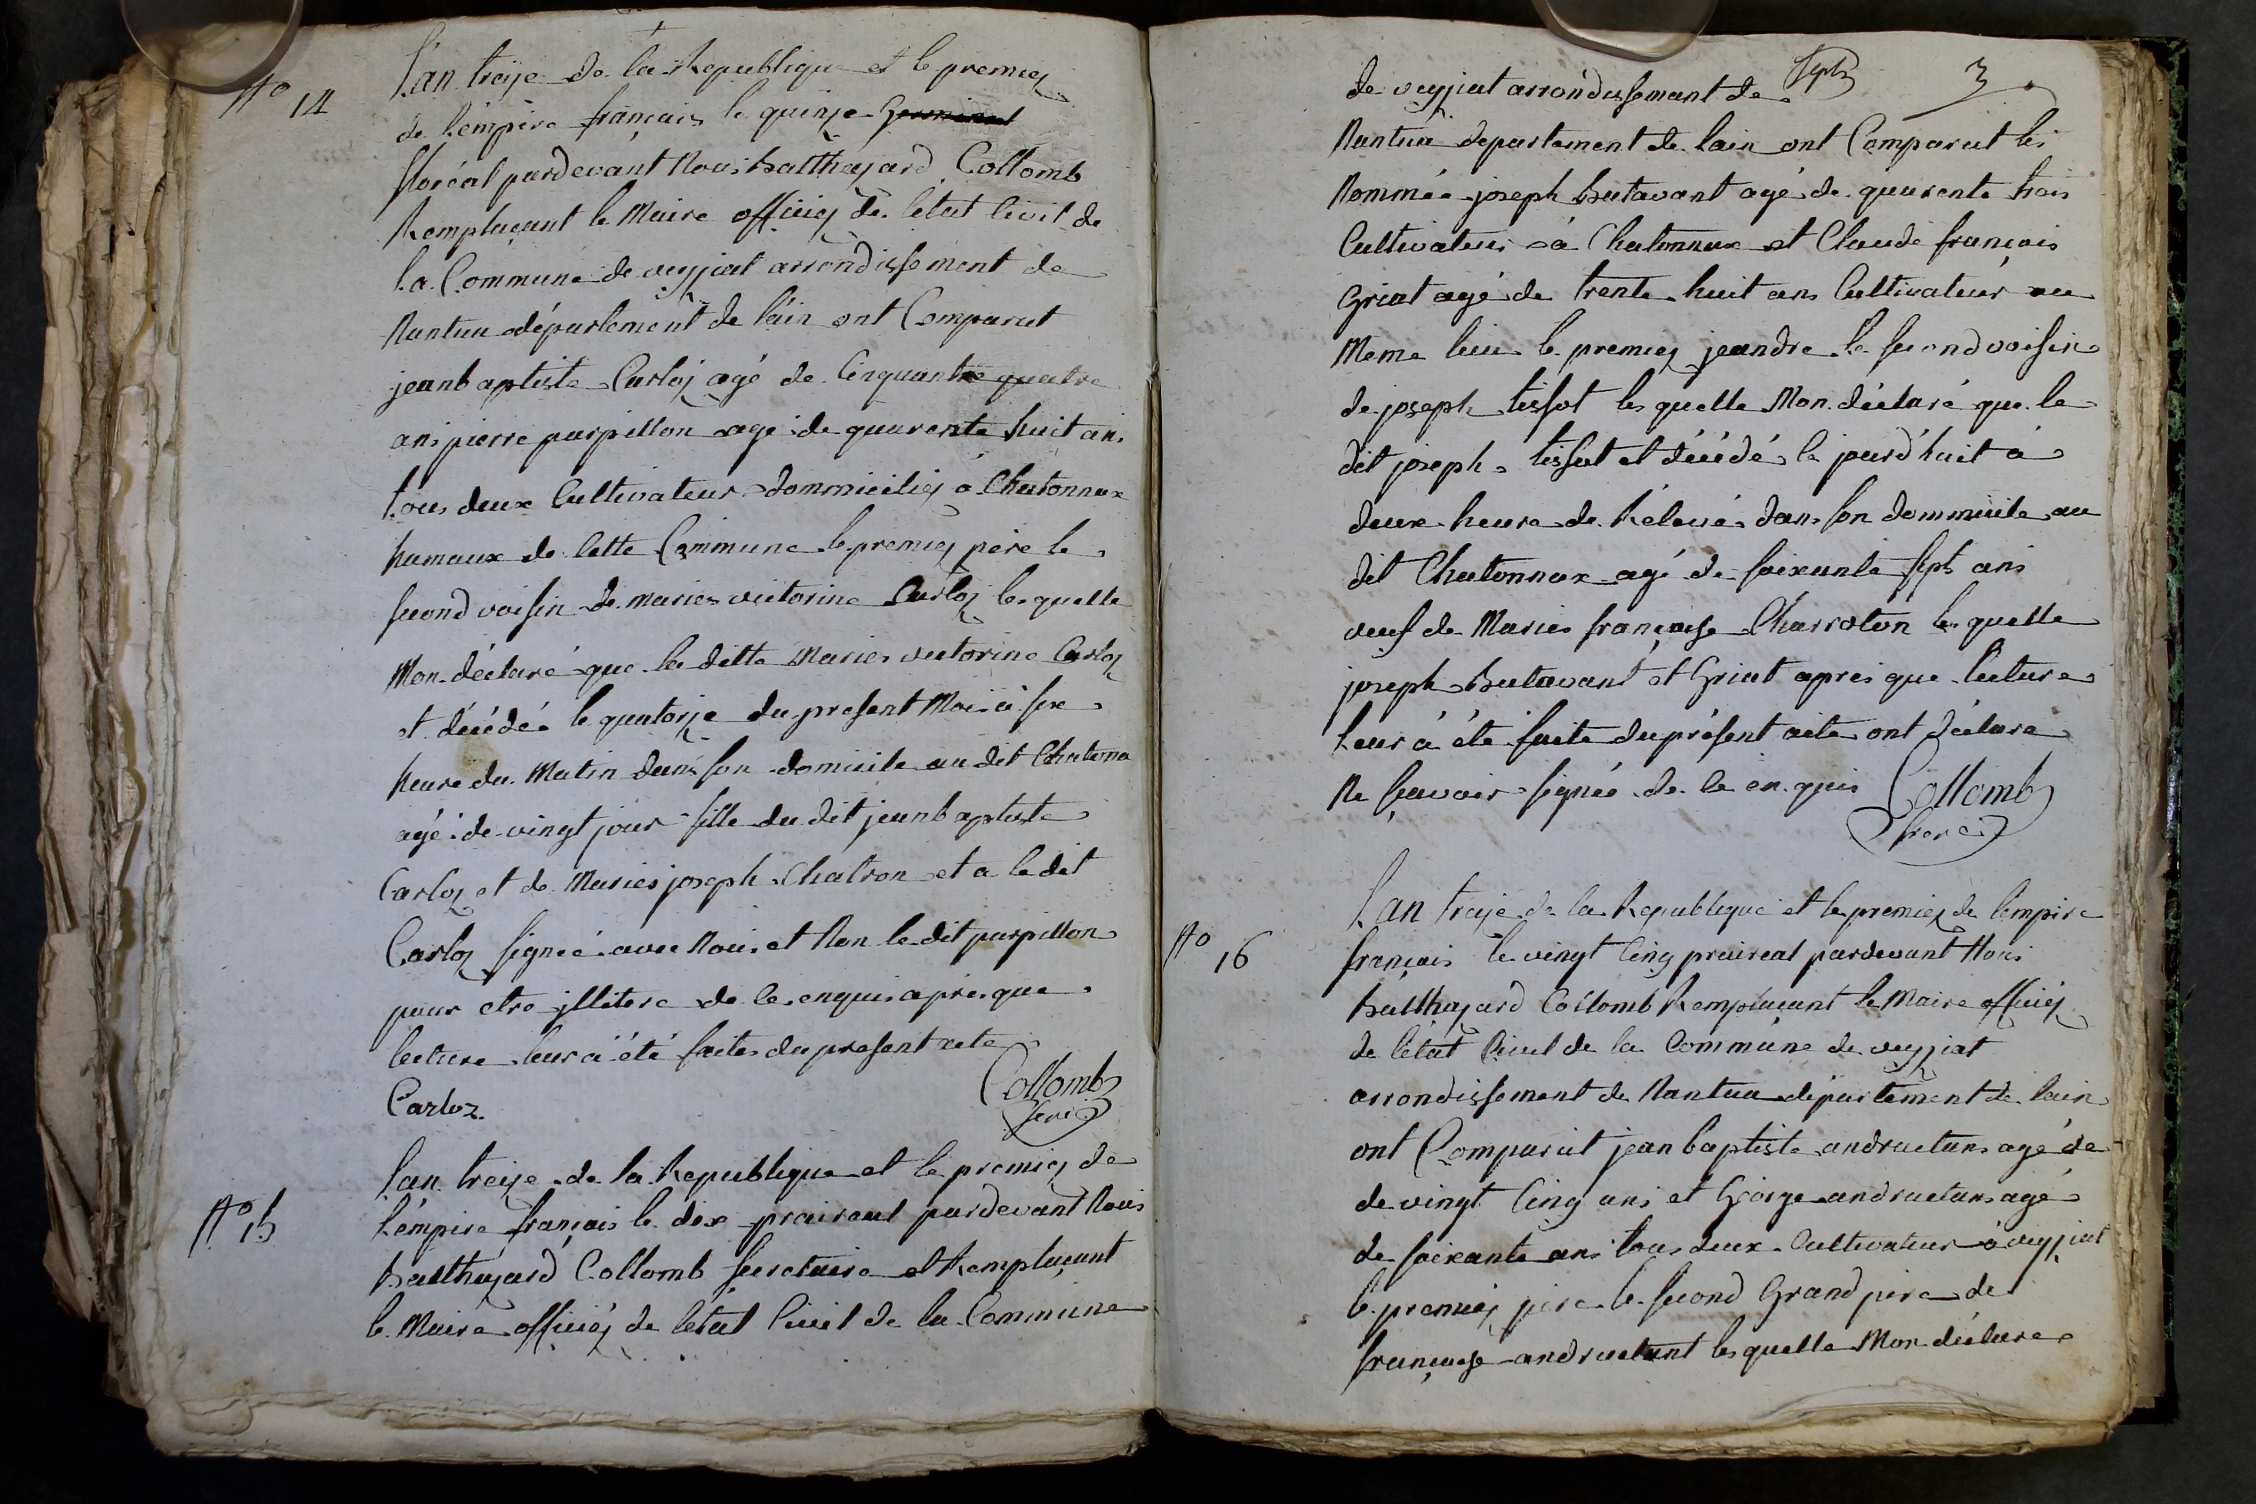 No 14
L'an treize de la Republique et le premier
de l'empire français le quinze Germinal
floréal pardevant Nous Balthazard Collomb
Remplaçant le Maire officier de l'etat Civil de
la Commune de veyziat arrondissement de
Nantua département de l'ain ont Comparut
jeanbaptiste Carloz agé de Cinquante quatre
ans pierre parpillon agé de quarente huit ans
tous deux Cultivateur dommiciliez a Chatonnax
hamaux de Cette Commune le premier père le
second voisin de maries victorine Carloz les quelle
Mon déclaré que la ditte Maries victorine Carloz
et décédée le quatorze du present Mois a six
heure du Matin dans son domicile au dit Chatona
agé de vingt jour fille du dit jeanbaptiste
Carloz et de Maries joseph Chatron et a le dit
Carloz signée avec Nous et Non le dit parpillon
pour etre jllitere de ce enquis apres que
lecture leur a été faites du present acte
Carloz. Collomb
No 15
L'an treize de la Republique et le premier de
l'empire français le dix prairial pardevant Nous
Balthazard Collomb secretaire et Remplaçant
le Maire officiéz de l'état Civil de la Commune
3
de veyziat arrondissement de
Nantua departement de lain ont Comparut les
Nommée joseph Butavant agé de quarente trois
Cultivateur à Chatonnax et Claude français
Griat agé de trente huit ans Cultivateur au
Meme lieu le premier jeandre le second voisin
de joseph tissot les quelle Mon déclaré que le
dit joseph tissot et décédé le jourd'huit à
deux heure de Rélevé dans son dommicile au
dit Chatonnax agé de soixante sept ans
veuf de Maries françoise Charroton les quelle
joseph Butavant et Griat apres que lecture
leur a été faite du présent acte ont déclare
Ne sçavoir signée de ce en quis Collomb
No 16
L'an treize de la Republique et le premier de l'empire
français le vingt Cinq prairéal pardevant Nous
Balthazard Collomb Remplaçant le Maire officiéz
de l'état Civil de la Commune de veyziat
arrondissement de Nantua département de lain
ont Comparut jean baptiste andructans agé de
de vingt Cinq ans et George andructans agé
de soixante ans tous deux Cultivateur à veyziat
le premier pere le second Grand pere de
françoise andructant les quelle Mon déclare